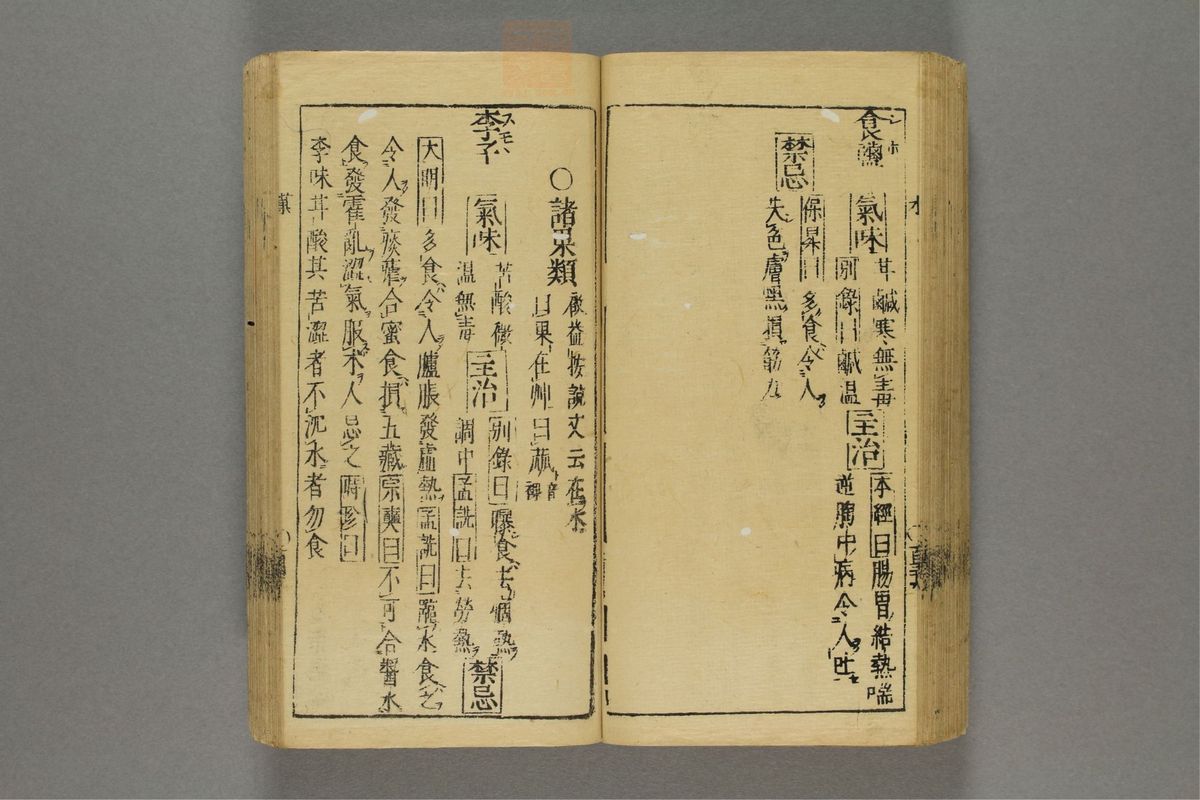 食鹽 シホ
氣味 甘鹹寒無毒
別錄曰鹹溫
主治 本經曰腸胃結熱喘
逆胸中病令人吐
禁忌
保昇曰多食令人
失色膚黑損筋力
水
○諸果類
按說文云在木
曰果在艸曰蓏 音
李子 スモヽ
氣味 苦酸微
溫無毒
主治 別錄曰曝食去痼熱
調中孟詵曰去勞熱
禁忌
大明曰多食令人臚脹發虛熱孟詵曰臨水食之
令人發痰瘧合蜜食損五藏宗奭曰不可合醬水
食發霍亂澀氣服朮人忌之時珍曰
李味甘酸其苦澀者不沉水者勿食
菓